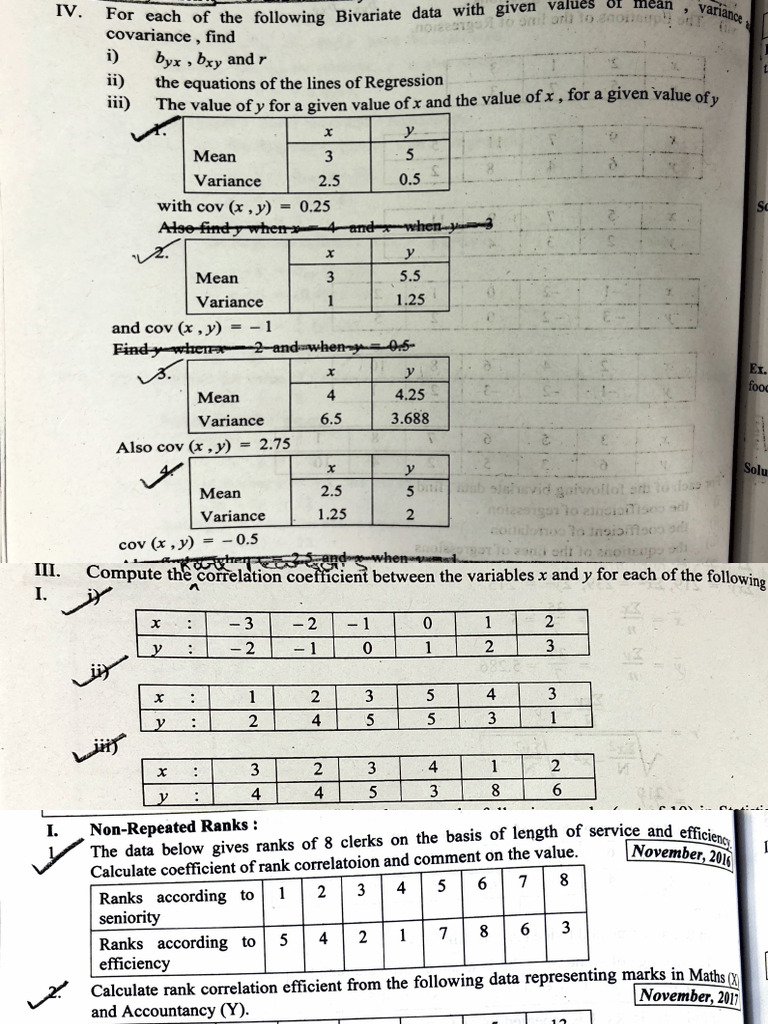 IV. For each of the following Bivariate data with given values of mean , variance
covariance , find
i) byx , bxy and r
ii) the equations of the lines of Regression
iii) The value of y for a given value of x and the value of x , for a given value of y
1.
x y
Mean 3 5
Variance 2.5 0.5
with cov (x , y) = 0.25
Also find y when x = 4 and x when y = 3
2.
x y
Mean 3 5.5
Variance 1 1.25
and cov (x , y) = – 1
Find y when x = 2 and when y = 0.5
3.
x y
Mean 4 4.25
Variance 6.5 3.688
Also cov (x , y) = 2.75
4.
x y
Mean 2.5 5
Variance 1.25 2
cov (x , y) = – 0.5
2.5 and x when y = 1
III. Compute the correlation coefficient between the variables x and y for each of the following
I. i)
x : – 3 – 2 – 1 0 1 2
y : – 2 – 1 0 1 2 3
ii)
x : 1 2 3 5 4 3
y : 2 4 5 5 3 1
iii)
x : 3 2 3 4 1 2
y : 4 4 5 3 8 6
I. Non-Repeated Ranks :
1. The data below gives ranks of 8 clerks on the basis of length of service and efficiency.
Calculate coefficient of rank correlatoion and comment on the value. November, 2016
Ranks according to seniority 1 2 3 4 5 6 7 8
Ranks according to efficiency 5 4 2 1 7 8 6 3
2. Calculate rank correlation efficient from the following data representing marks in Maths (X)
and Accountancy (Y). November, 2017
Ex.
Solu